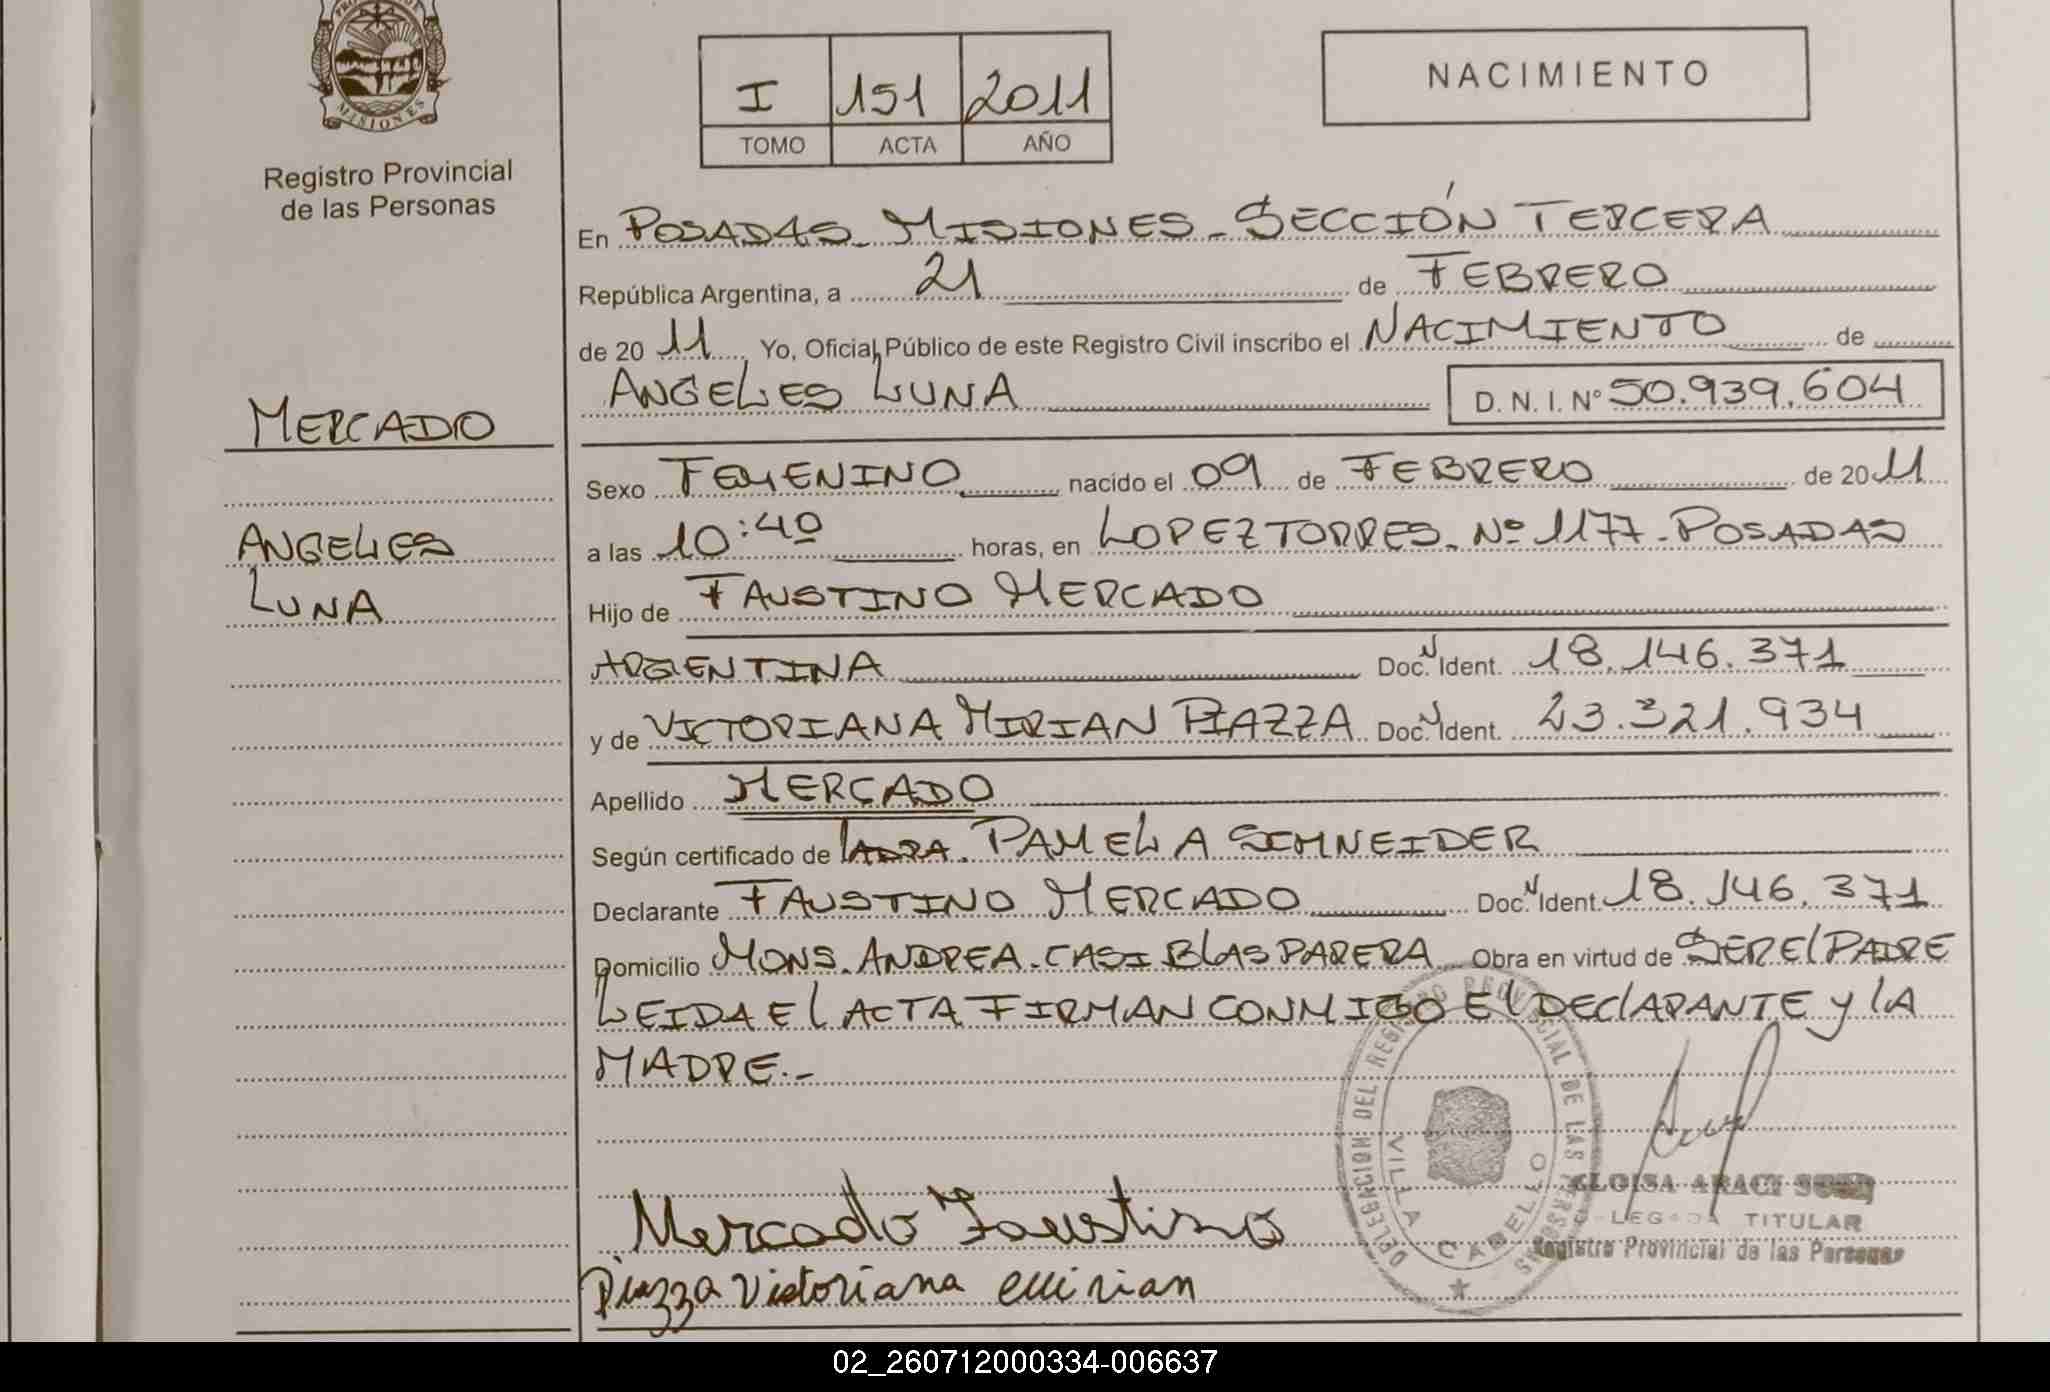 MISIONES
Registro Provincial
de las Personas
I 151 2011
TOMO ACTA AÑO
NACIMIENTO
En POSADAS - MISIONES - SECCIÓN TERCERA
República Argentina, a 21 de FEBRERO
de 20 11 Yo, Oficial Público de este Registro Civil inscribo el NACIMIENTO de
ANGELES LUNA D. N. I. Nº 50.939.604
MERCADO
Sexo FEMENINO nacido el 09 de FEBRERO de 20 11
ANGELES
a las 10:40 horas, en LOPEZ TORRES - Nº 1177 - POSADAS
LUNA
Hijo de FAUSTINO MERCADO
ARGENTINA Doc. N Ident. 18.146.371
y de VICTORIANA MIRIAN PIAZZA Doc. N Ident. 23.321.934
Apellido MERCADO
Según certificado de PAMELA SCHNEIDER
Declarante FAUSTINO MERCADO Doc. N Ident. 18.146.371
Domicilio MONS. ANDREA - CASI BLAS PARERA Obra en virtud de SER El PADRE
LEIDA El ACTA FIRMAN CONMIGO El DEClARANTE y lA
MADRE.-
DELEGACION DEL REGISTRO PROVINCIAL DE LAS PERSONAS
VILLA CABELLO
ELOISA ARACY
DELEGADA TITULAR
Registro Provincial de las Personas
Mercado Faustino
Piazza Victoriana Mirian
02_260712000334-006637